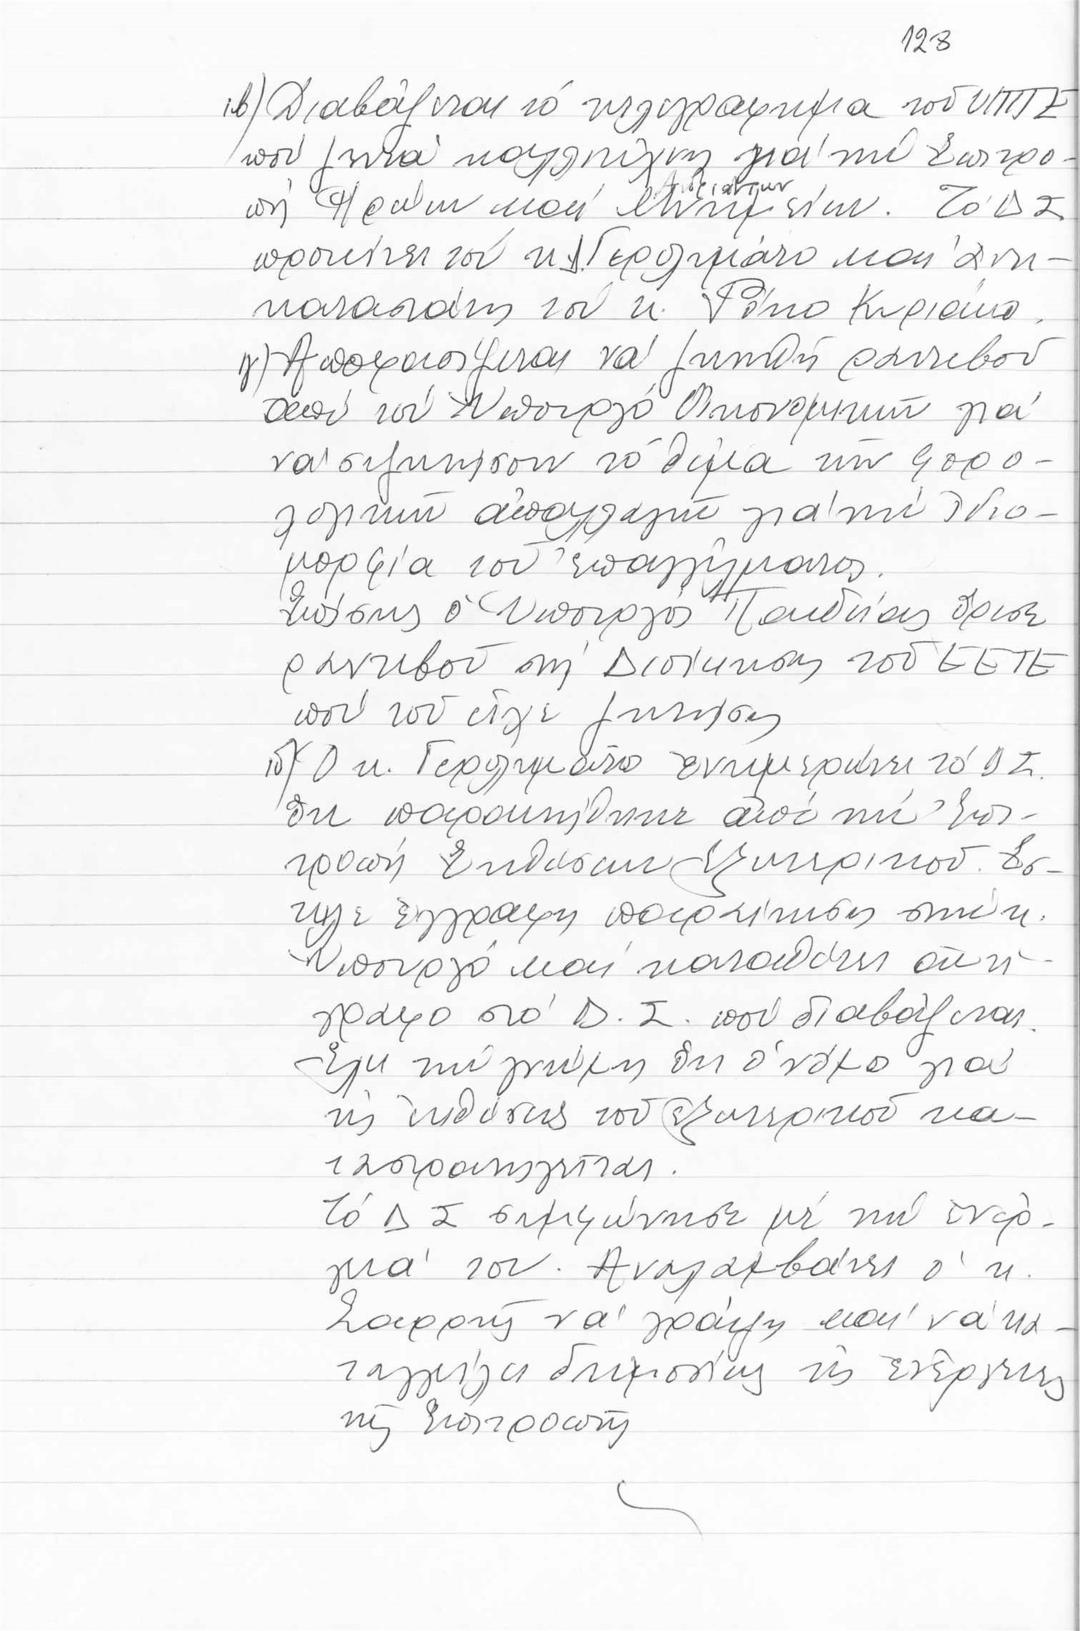 128
ιβ) Διαβάζεται τό τηλεγράφημα τοῦ ΥΠΠΕ
πού ζητᾶ καλλιτέχνη γιά τήν Ἐπιτρο-
Ἀνδριάντων
πή Ἡρώων καί Μνημείων. Τό Δ Σ
προτείνει τόν κ. Δ. Γερολυμᾶτο καί ἀντι-
καταστάτη τόν κ. Ρόκο Κυριάκο.
ιγ) Ἀποφασίζεται νά ζητηθῆ ραντεβού
ἀπό τόν Ὑπουργό Οἰκονομικῶν γιά
νά συζητήσουν τό θέμα τῶν φορο-
λογικῶν ἀπαλλαγῶν γιά τήν ἰδιο-
μορφία τοῦ ἐπαγγέλματος.
Ἐπίσης ὁ Ὑπουργός Παιδείας ὅρισε
ραντεβού στή Διοίκηση τοῦ ΕΕΤΕ
πού τοῦ εἶχε ζητήσει
ιδ) Ὁ κ. Γερολυμᾶτος ἐνημερώνει τό Δ Σ.
ὅτι παραιτήθηκε ἀπό τήν Ἐπι-
τροπή Ἐκθέσεων Ἐξωτερικοῦ. Ἔσ-
τειλε ἔγγραφη παραίτηση στόν κ.
Ὑπουργό καί καταθέτει ἀντί-
γραφο στό Δ. Σ. πού διαβάζεται.
Ἔχει τήν γνώμη ὅτι ὁ νόμο γιά
τίς ἐκθέσεις τοῦ ἐξωτερικοῦ κα-
ταστρατηγεῖται.
Τό Δ Σ συμφώνησε μέ τήν ἐνέρ-
γειά του. Ἀναλαμβάνει ὁ κ.
Σαρρῆς νά γράψη καί νά κα-
ταγγείλει δημοσίως τίς ἐνέργειες
τῆς Ἐπιτροπῆς